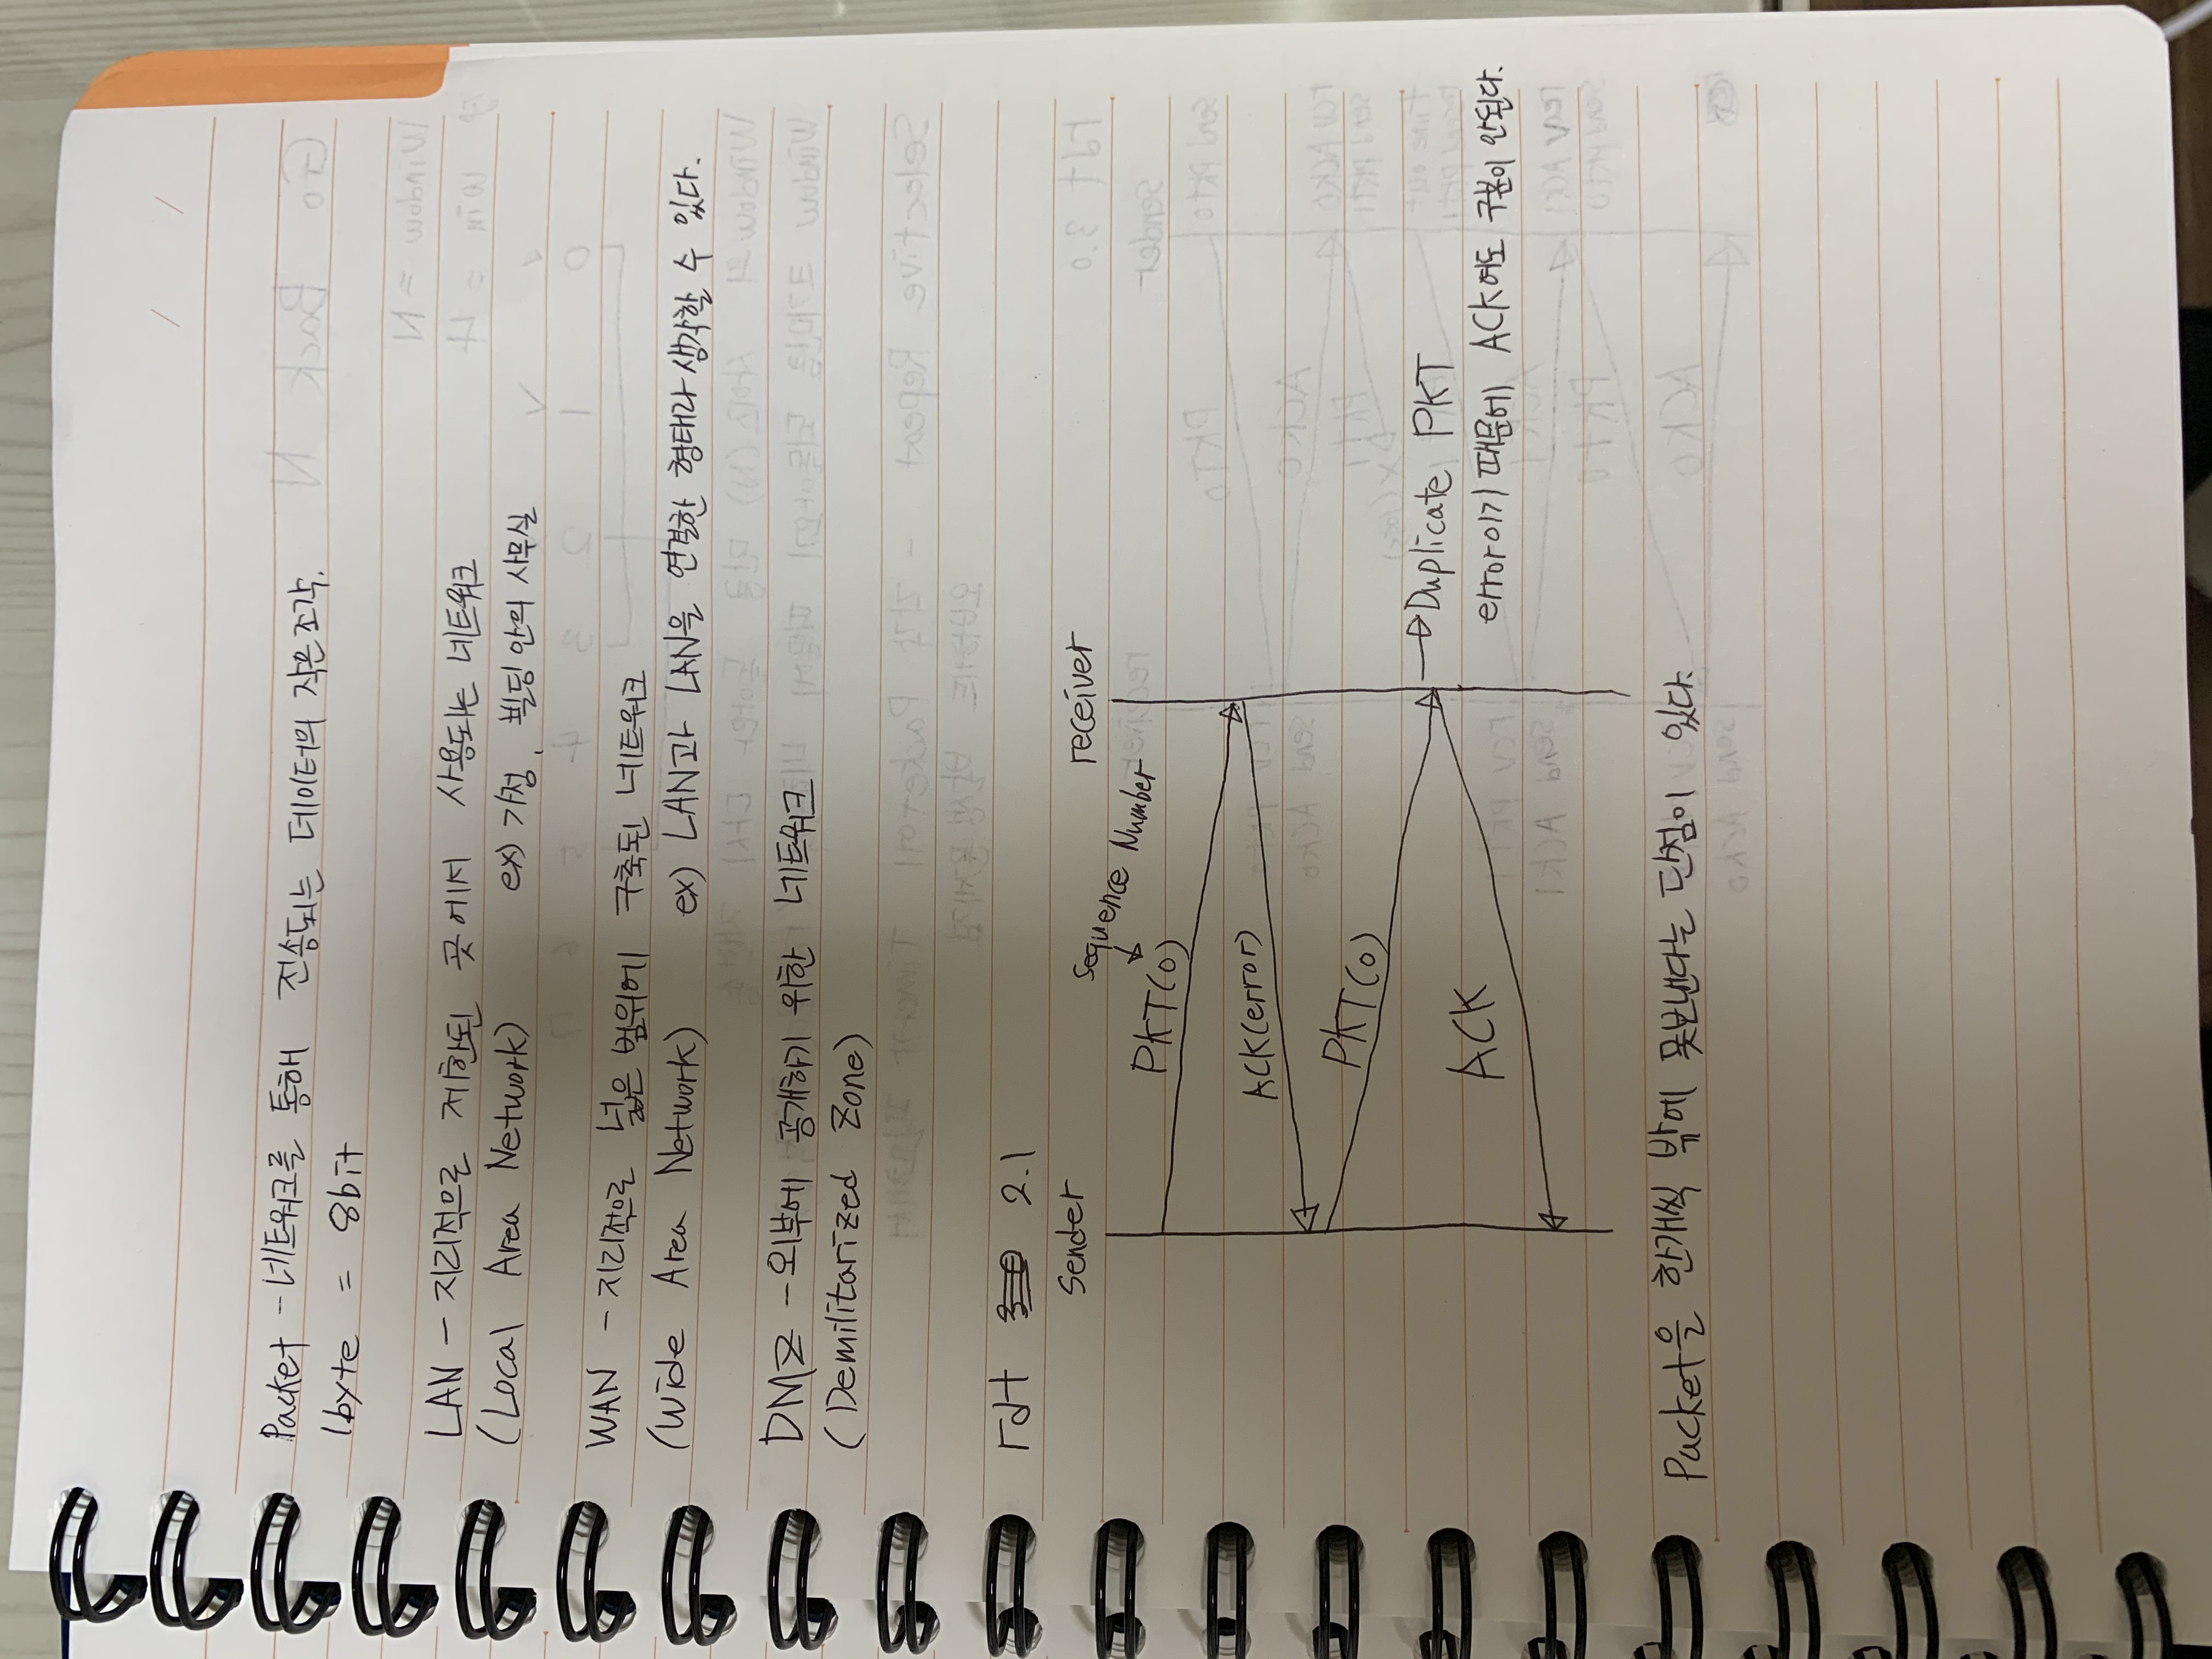 Packet - 네트워크를 통해 전송되는 데이터의 작은 조각.
1byte = 8bit
LAN - 지리적으로 제한된 곳에서 사용되는 네트워크
(Local Area Network) ex) 가정, 빌딩 안의 사무실
WAN - 지리적으로 넓은 범위에 구축된 네트워크
(Wide Area Network) ex) LAN과 LAN을 연결한 형태라 생각할 수 있다.
DMZ - 외부에 공개하기 위한 네트워크
(Demilitarized Zone)
rdt 2.1
Sender receiver
Sequence Number
PKT(0)
ACK(error)
PKT(0)
Duplicate PKT
ACK
error이기 때문에 ACK에도 구분이 안된다.
Packet을 한개씩 밖에 못보낸다는 단점이 있다.